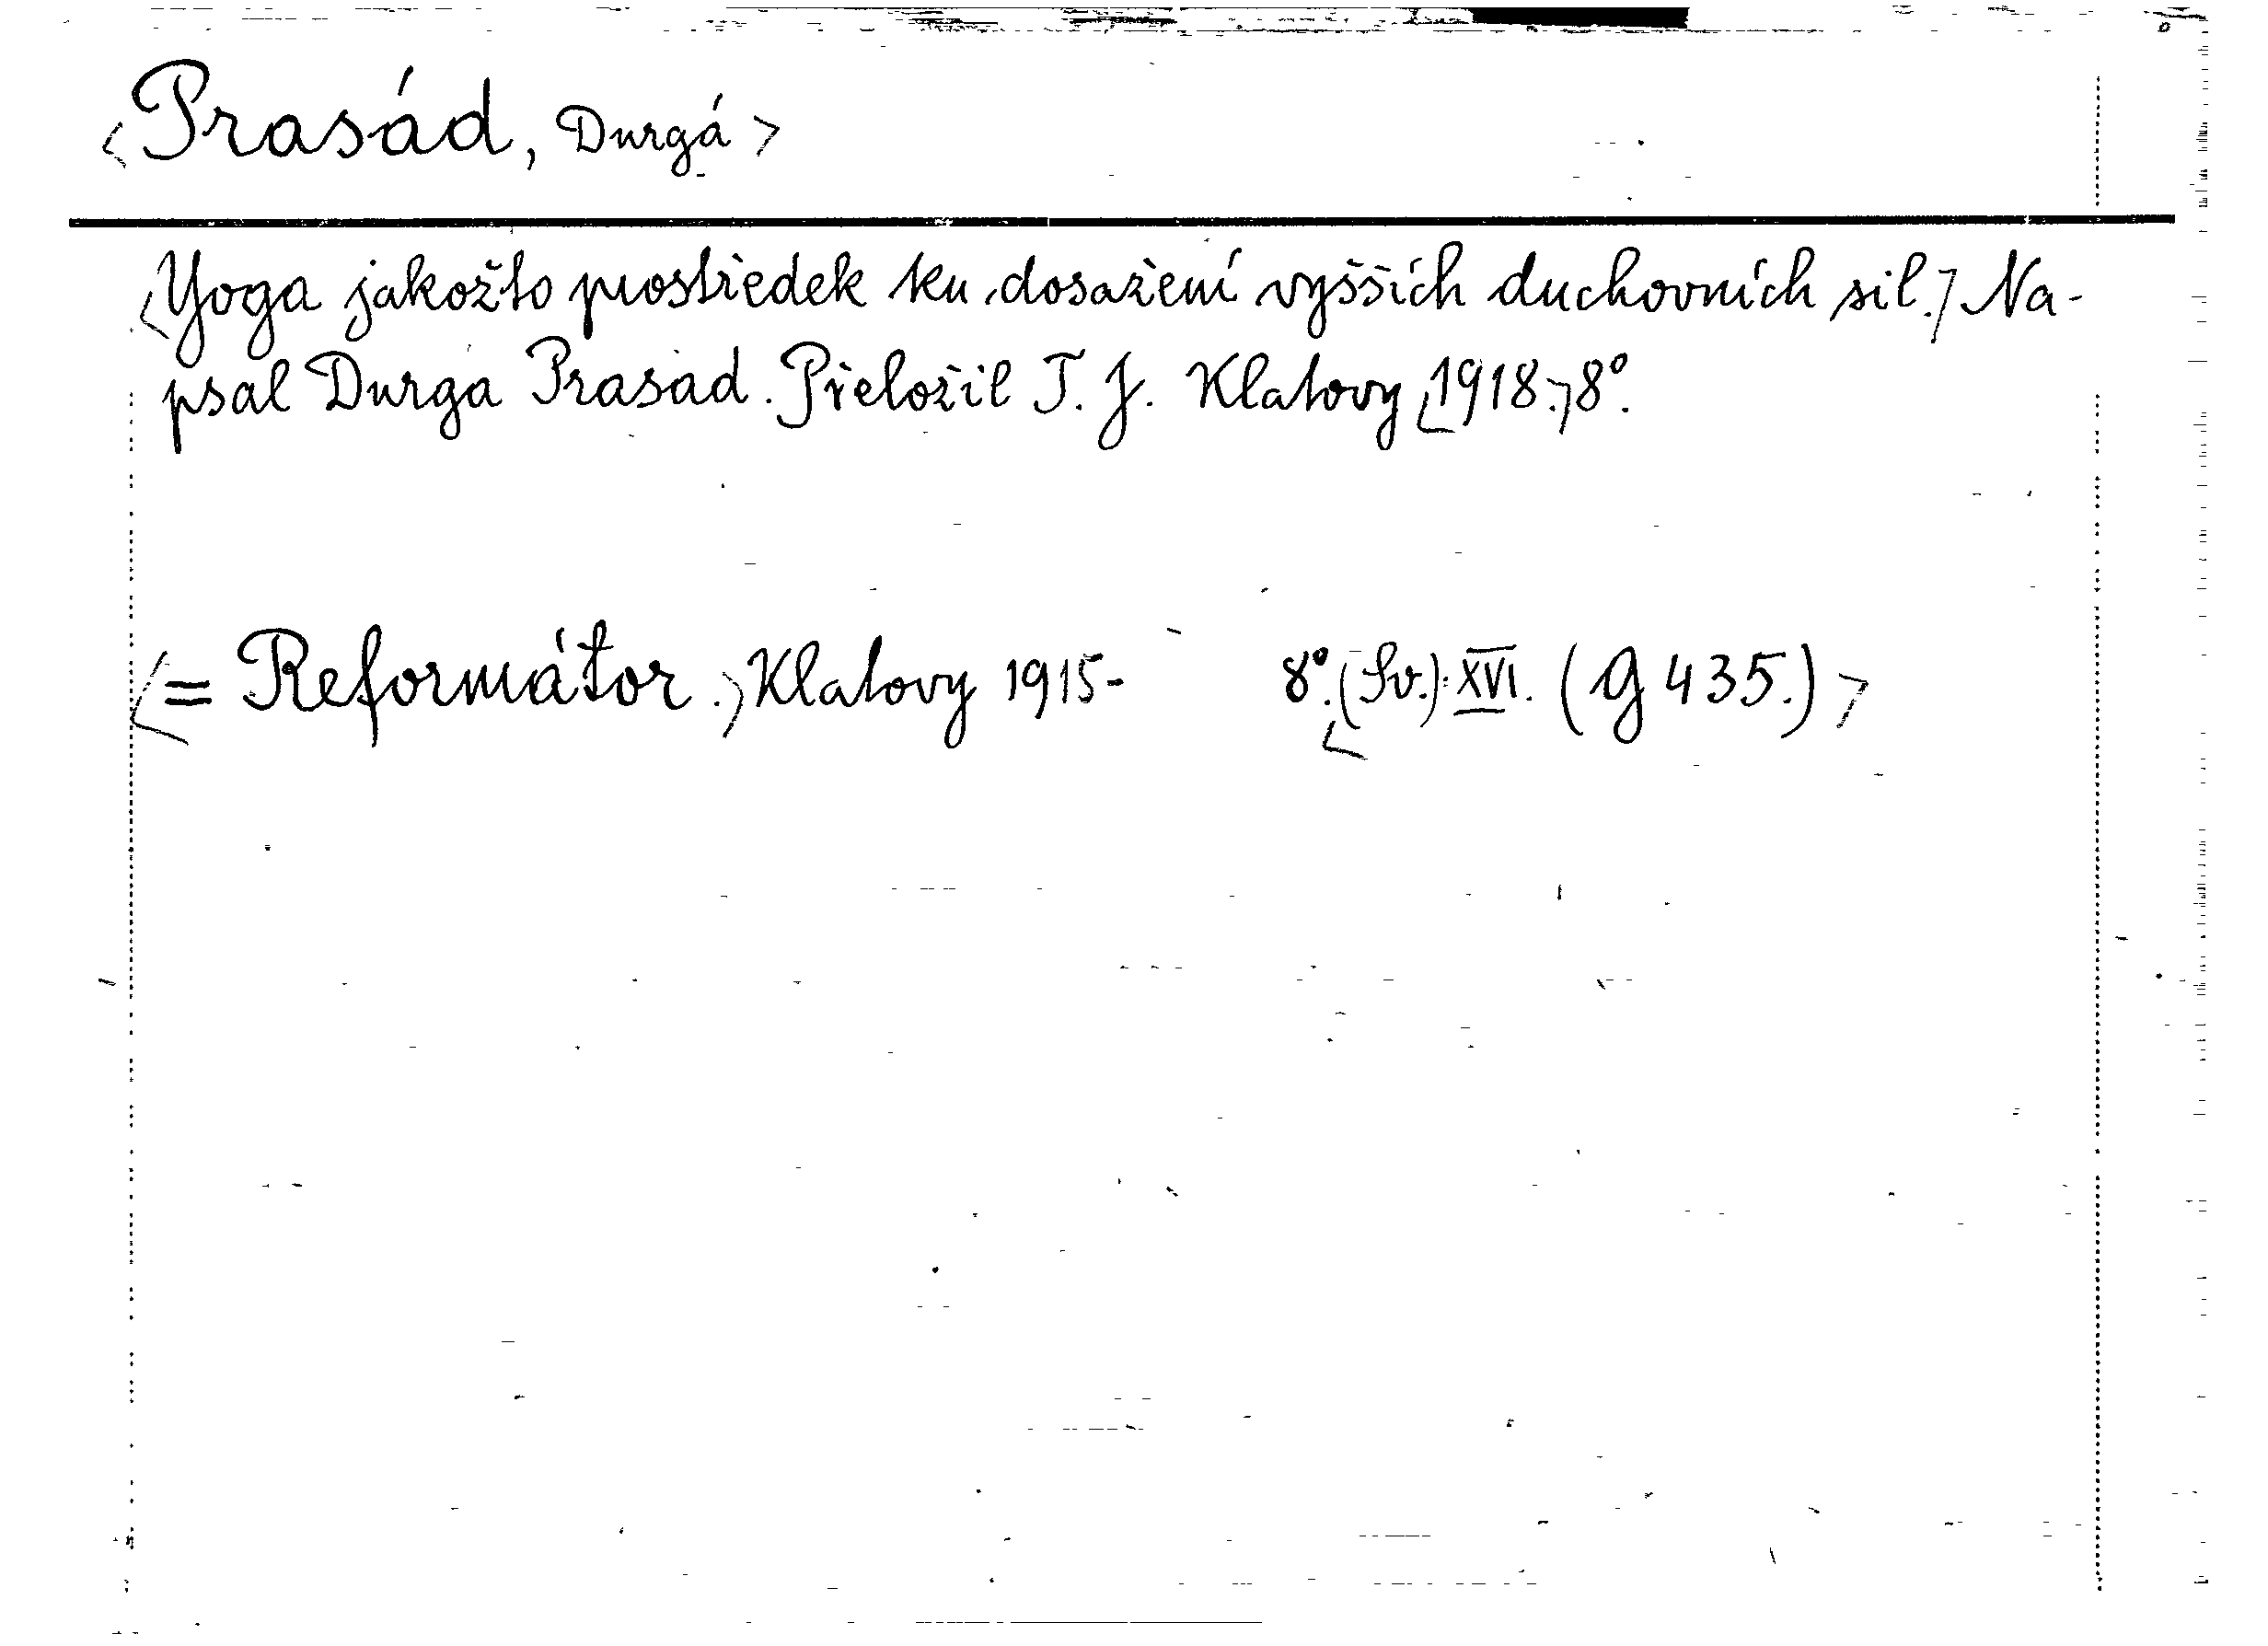 <Prasád, Durgá>
<Yoga jakožto prostředek ku dosažení vyšších duchovních sil.> Na-
psal Durga Prasad. Přeložil T. J. Klatovy <1918.> 8°.
<= Reformátor.> Klatovy 1915-   8°. <(Sv.): XVI. (G 435.)>